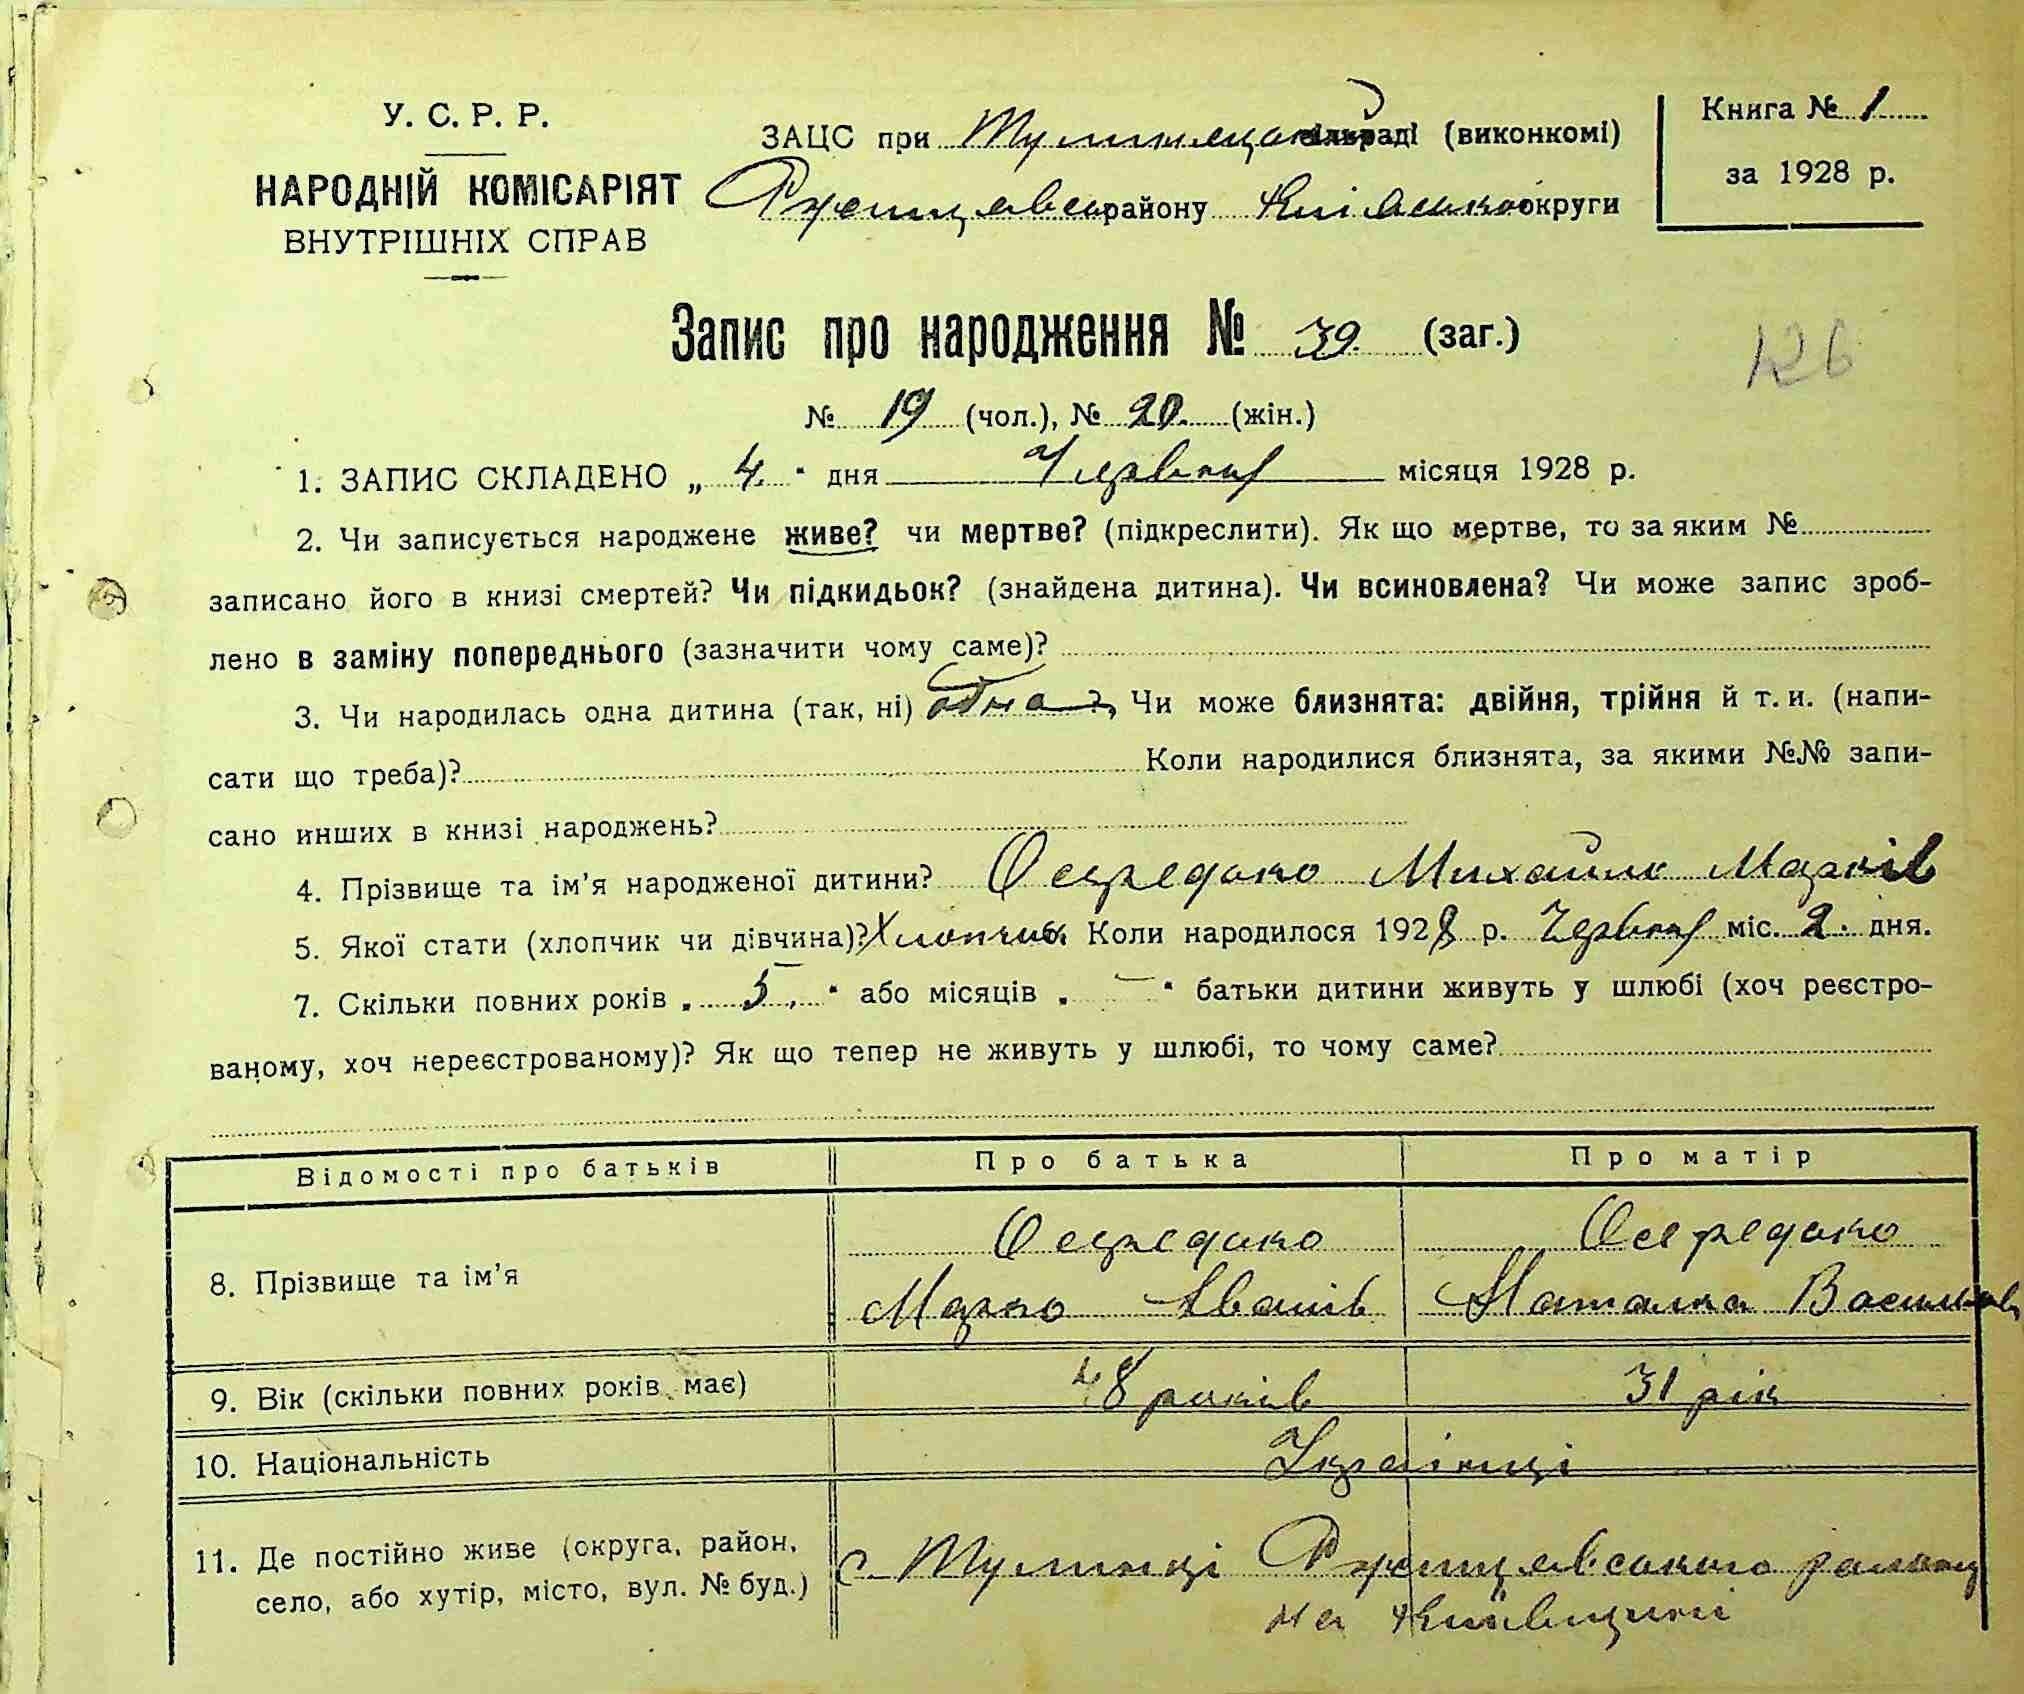 У. С. Р. Р.
НАРОДНІЙ КОМІСАРІЯТ
ВНУТРІШНІХ СПРАВ
ЗАЦС при Тулинецькій сільраді (виконкомі)
Ржищівськ району Київської округи
Книга № 1
за 1928 р.
Запис про народження № 39 (заг.)
126
№ 19 (чол.), № 20. (жін.)
1. ЗАПИС СКЛАДЕНО „ 4 " дня Червня місяця 1928 р.
2. Чи записується народжене живе? чи мертве? (підкреслити). Як що мертве, то за яким №
записано його в книзі смертей? Чи підкидьок? (знайдена дитина). Чи всиновлена? Чи може запис зроб-
лено в заміну попереднього (зазначити чому саме)?
3. Чи народилась одна дитина (так, ні) одна ?, Чи може близнята: двійня, трійня й т. и. (напи-
сати що треба)? Коли народилися близнята, за якими №№ запи-
сано инших в книзі народжень?
4. Прізвище та ім'я народженої дитини? Осередько Михайло Марків
5. Якої стати (хлопчик чи дівчина)? Хлопчик Коли народилося 1928 р. Червня міс. 2. дня.
7. Скільки повних років „ 5 " або місяців „ — " батьки дитини живуть у шлюбі (хоч реєстро-
ваному, хоч нереєстрованому)? Як що тепер не живуть у шлюбі, то чому саме?
Відомості про батьків Про батька Про матір
8. Прізвище та ім'я Осередько Осередько
Марко Іванів Наталка Василівна
9. Вік (скільки повних років має) 48 років 31 рік
10. Національність Українці
11. Де постійно живе (округа, район,
село, або хутір, місто, вул. № буд.) с. Тулинці Ржищівського району
на Київщині